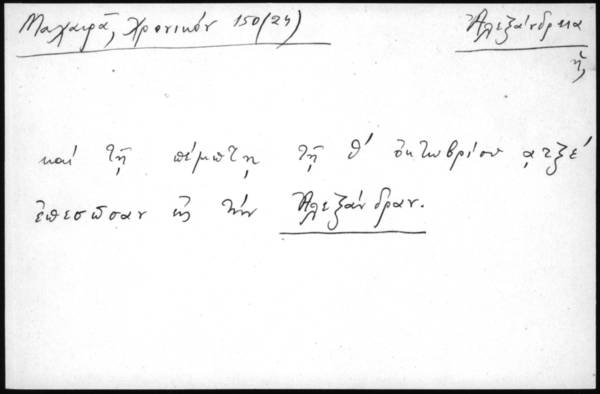 Μαχαιρᾶ, Χρονικόν 150(24)
Ἀλεξάνδρεια
ἡ,
καί τῇ πέμπτῃ τῇ θ΄ ὀκτωβρίου ͵ατξε΄
ἐπεσῶσαν εἰς τήν Ἀλεξάνδραν.